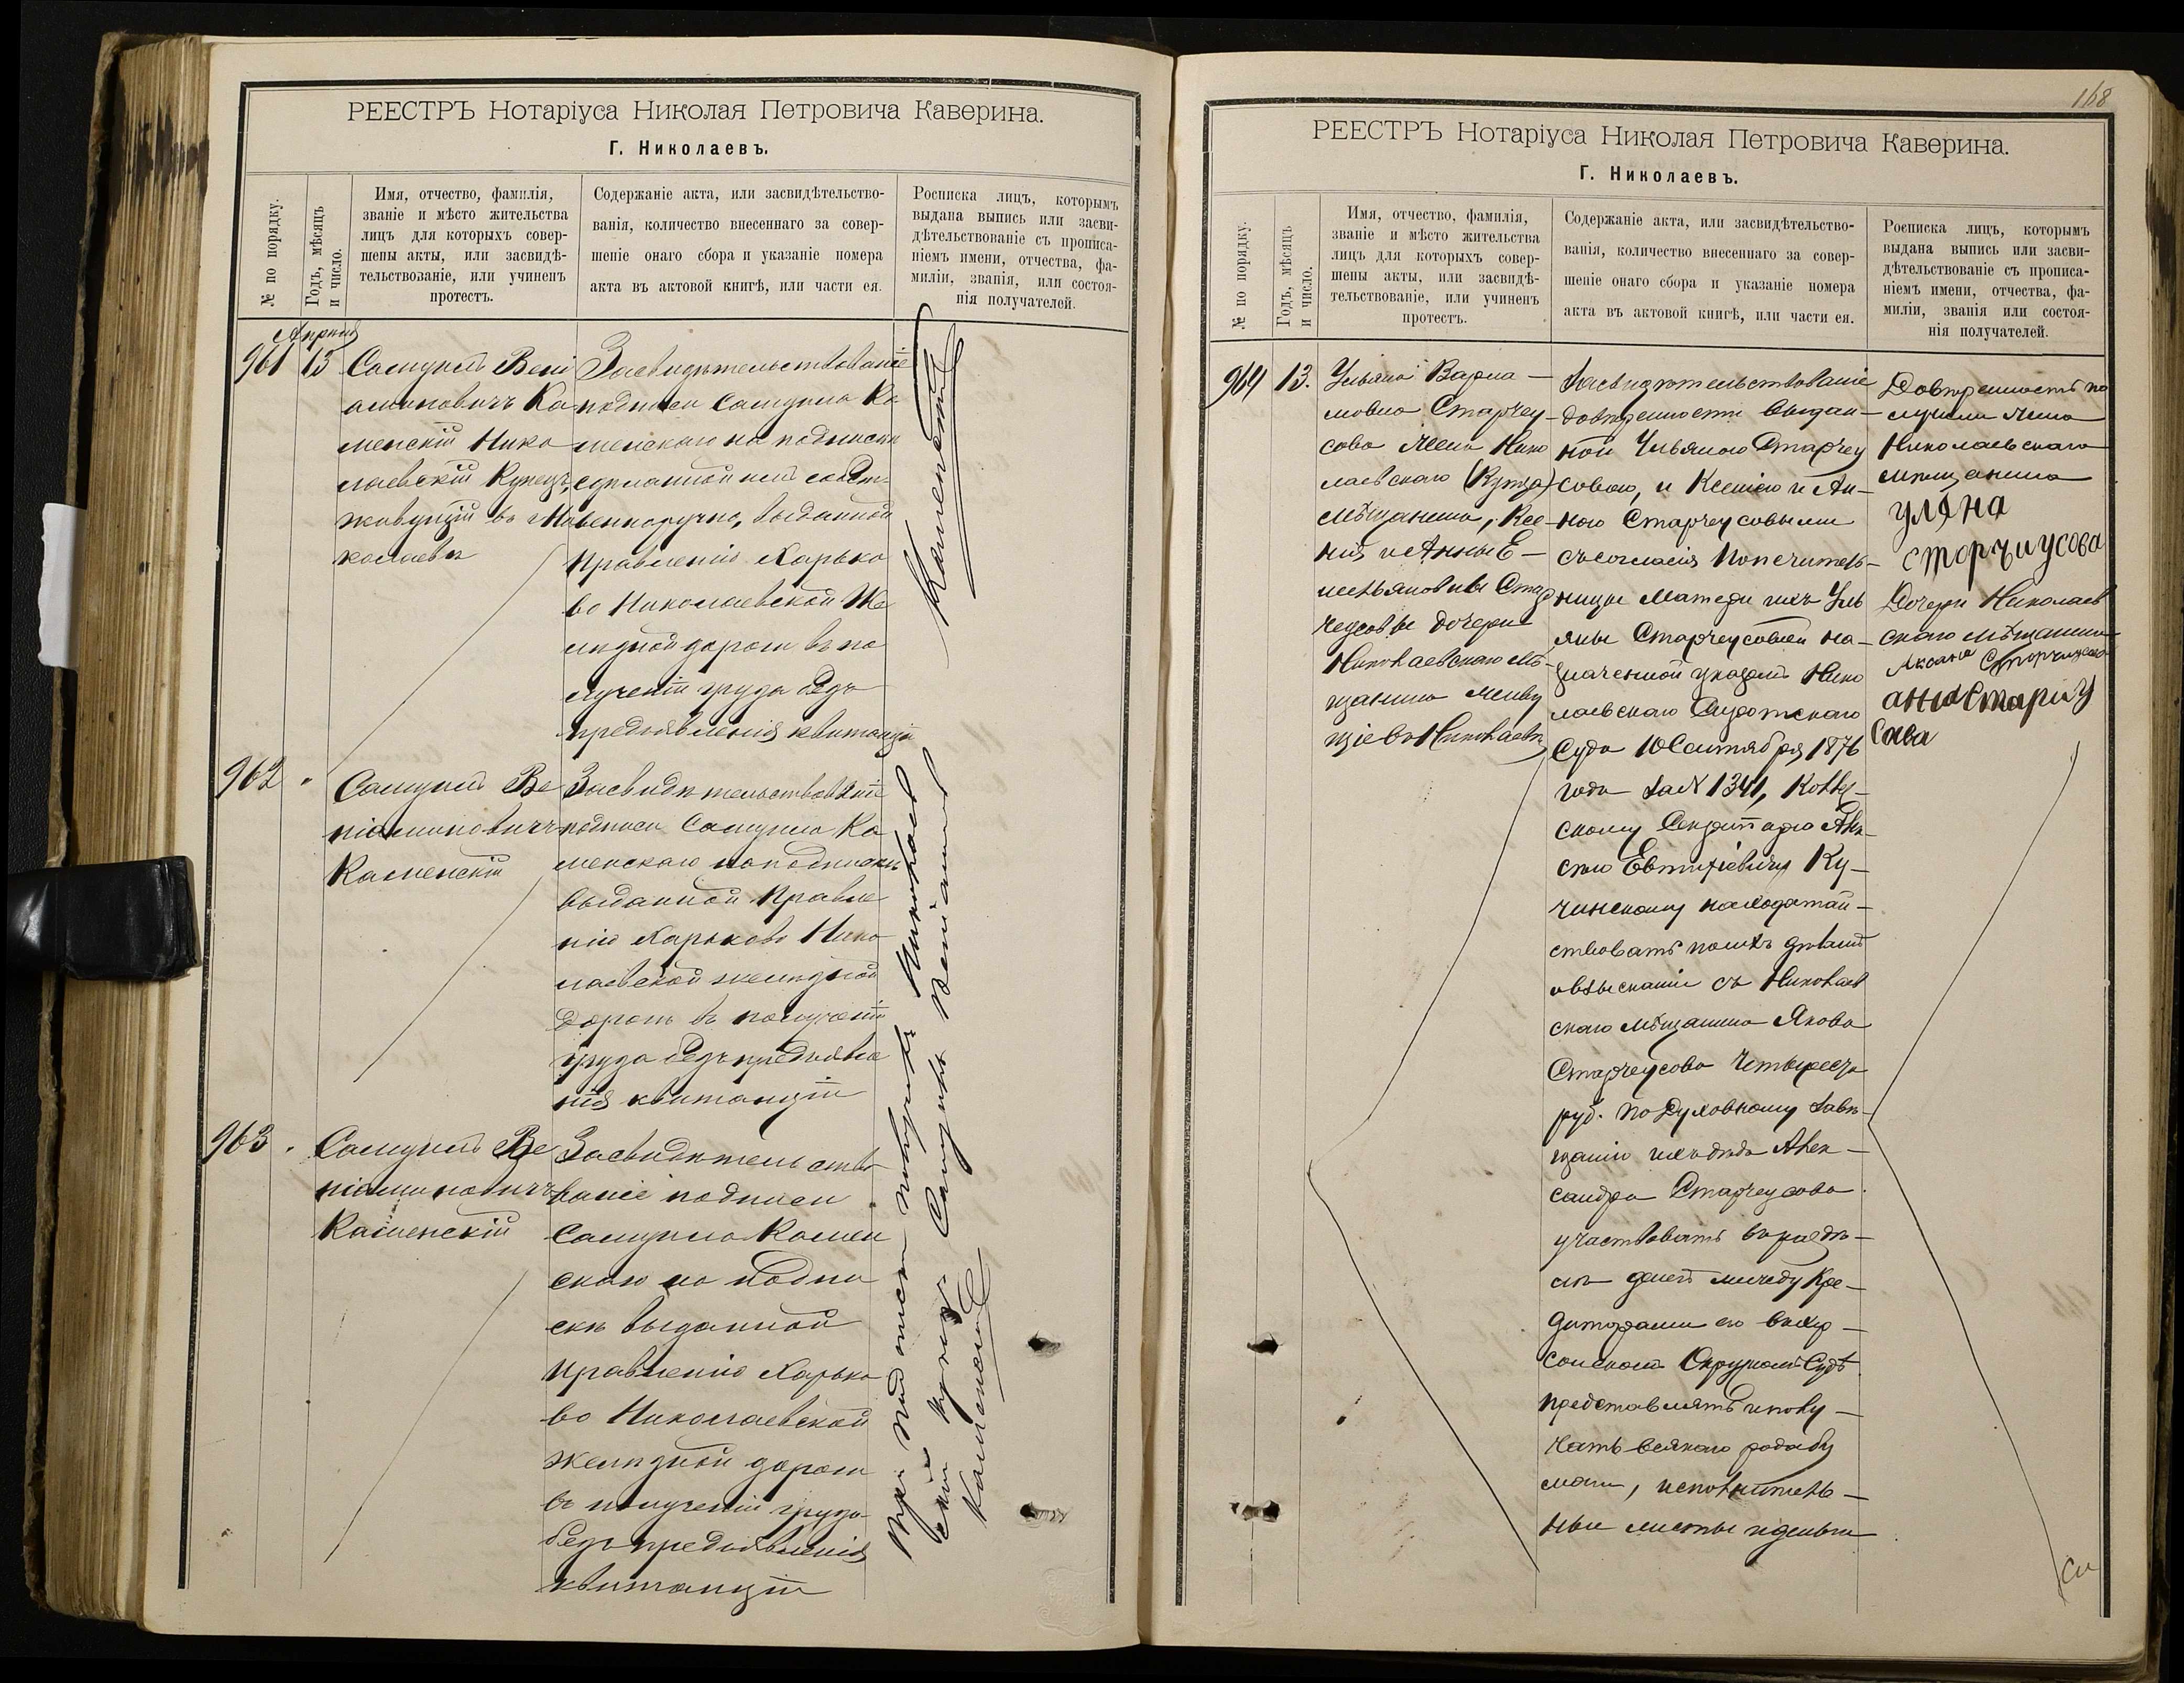 РЕЕСТРЪ Нотаріуса Николая Петровича Каверина.
Г. Николаевъ.
№ по порядку.
Годъ, мѣсяцъ
и число.
Имя, отчество, фамилія,
званіе и мѣсто жительства
лицъ для которыхъ совер-
шены акты, или засвидѣ-
тельствозаніе, или учиненъ
протестъ.
Содержаніе акта, или засвидѣтельство-
ванія, количество внесеннаго за совер-
шеніе онаго сбора и указаніе номера
акта въ актовой книгѣ, или части ея.
Росписка лицъ, которымъ
выдана выпись или засви-
дѣтельствованіе съ прописа-
ніемъ имени, отчества, фа-
миліи, званія, или состоя-
нія получателей.
Апрѣля
961
13
Самуилъ Вені
аминовичъ Ка
менскій Нико
лаевскій Купецъ,
живущій въ Ни
колаевѣ
Засвидѣтельствованіе
подписи Самуила Ка
менскаго на подпискѣ
сдѣланной имъ собст-
венноручно, выданной
Правленію Харько
во Николаевской Же
лѣзной дороги въ по
лученіи груза безъ
предъявленія квитанціи
962
Самуилъ Ве
ніаминовичъ
Каменскій
Засвидѣтельствованіе
подписи Самуила Ка
менскаго на подпискѣ
выданной Правле
нію Харьково Нико
лаевской желѣзной
дороги въ полученіи
груза безъ предъявле
нія квитанціи
963
Самуилъ Ве
ніаминовичъ
Каменскій
Засвидѣтельство
ваніе подписи
Самуила Камен
скаго на подпи
скѣ выданной
Правленію Харько
во Николаевской
желѣзной дороги
въ полученіи груза
безъ предъявленія
квитанціи
Каменскій
Три подписки получилъ Николаев
скій купецъ Самуилъ Веніаминов
Каменскій
168
РЕЕСТРЪ Нотаріуса Николая Петровича Каверина.
Г. Николаевъ.
№ по порядку.
Годъ, мѣсяцъ
и число.
Имя, отчество, фамилія,
званіе и мѣсто жительства
лицъ для которыхъ совер-
шены акты, или засвидѣ-
тельствованіе, или учиненъ
протестъ.
Содержаніе акта, или засвидѣтельство-
ванія, количество внесеннаго за совер-
шеніе онаго сбора и указаніе номера
акта въ актовой книгѣ, или части ея.
Росписка лицъ, которымъ
выдана выпись или засви-
дѣтельствованіе съ прописа-
ніемъ имени, отчества, фа-
миліи, званія или состоя-
нія получателей.
964
13.
Ульяна Варла-
мовна Старчеу-
сова жена Нико
лаевскаго (Купца)
Мѣщанина, Ксе-
нія и Анны Е-
мельяновны Стар
чеусовы дочери
Николаевскаго Мѣ-
щанина живу
щіе въ Николаевѣ
Засвидѣтельствованіе
довѣренности выдан-
ной Ульяною Старчеу
совою, и Ксеніею и Ан-
ною Старчеусовыми
съ согласія Попечитель-
ницы Матери ихъ Уль
яны Старчеусовой на-
значенной указомъ Нико
лаевскаго Сиротскаго
Суда 10 Сентября 1876
года за № 1341, Колле-
скому Секретарю Алек-
сѣю Евтихіевичу Ку-
чинскому ходатай-
ствовать по ихъ дѣламъ
о взысканіи съ Николаев
скаго мѣщанина Якова
Старчеусова четыреста
руб. по Духовному Завѣ-
щанію ихъ дѣда Алек-
сандра Старчеусова
участвовать въ раздѣ-
лѣ денегъ между Кре-
диторами его въ Хер-
сонскомъ Окружномъ Судѣ
представлять и полу-
чать всякаго рода бу
маги, исполнитель-
ные листы и деньги
Довѣренность по
лучили жена
Николаевскаго
мѣщанина
уляна
сторчиусова
Дочери Николаев
скаго мѣщанина
Аксана Сторчиусова
анна Старчу
Сова